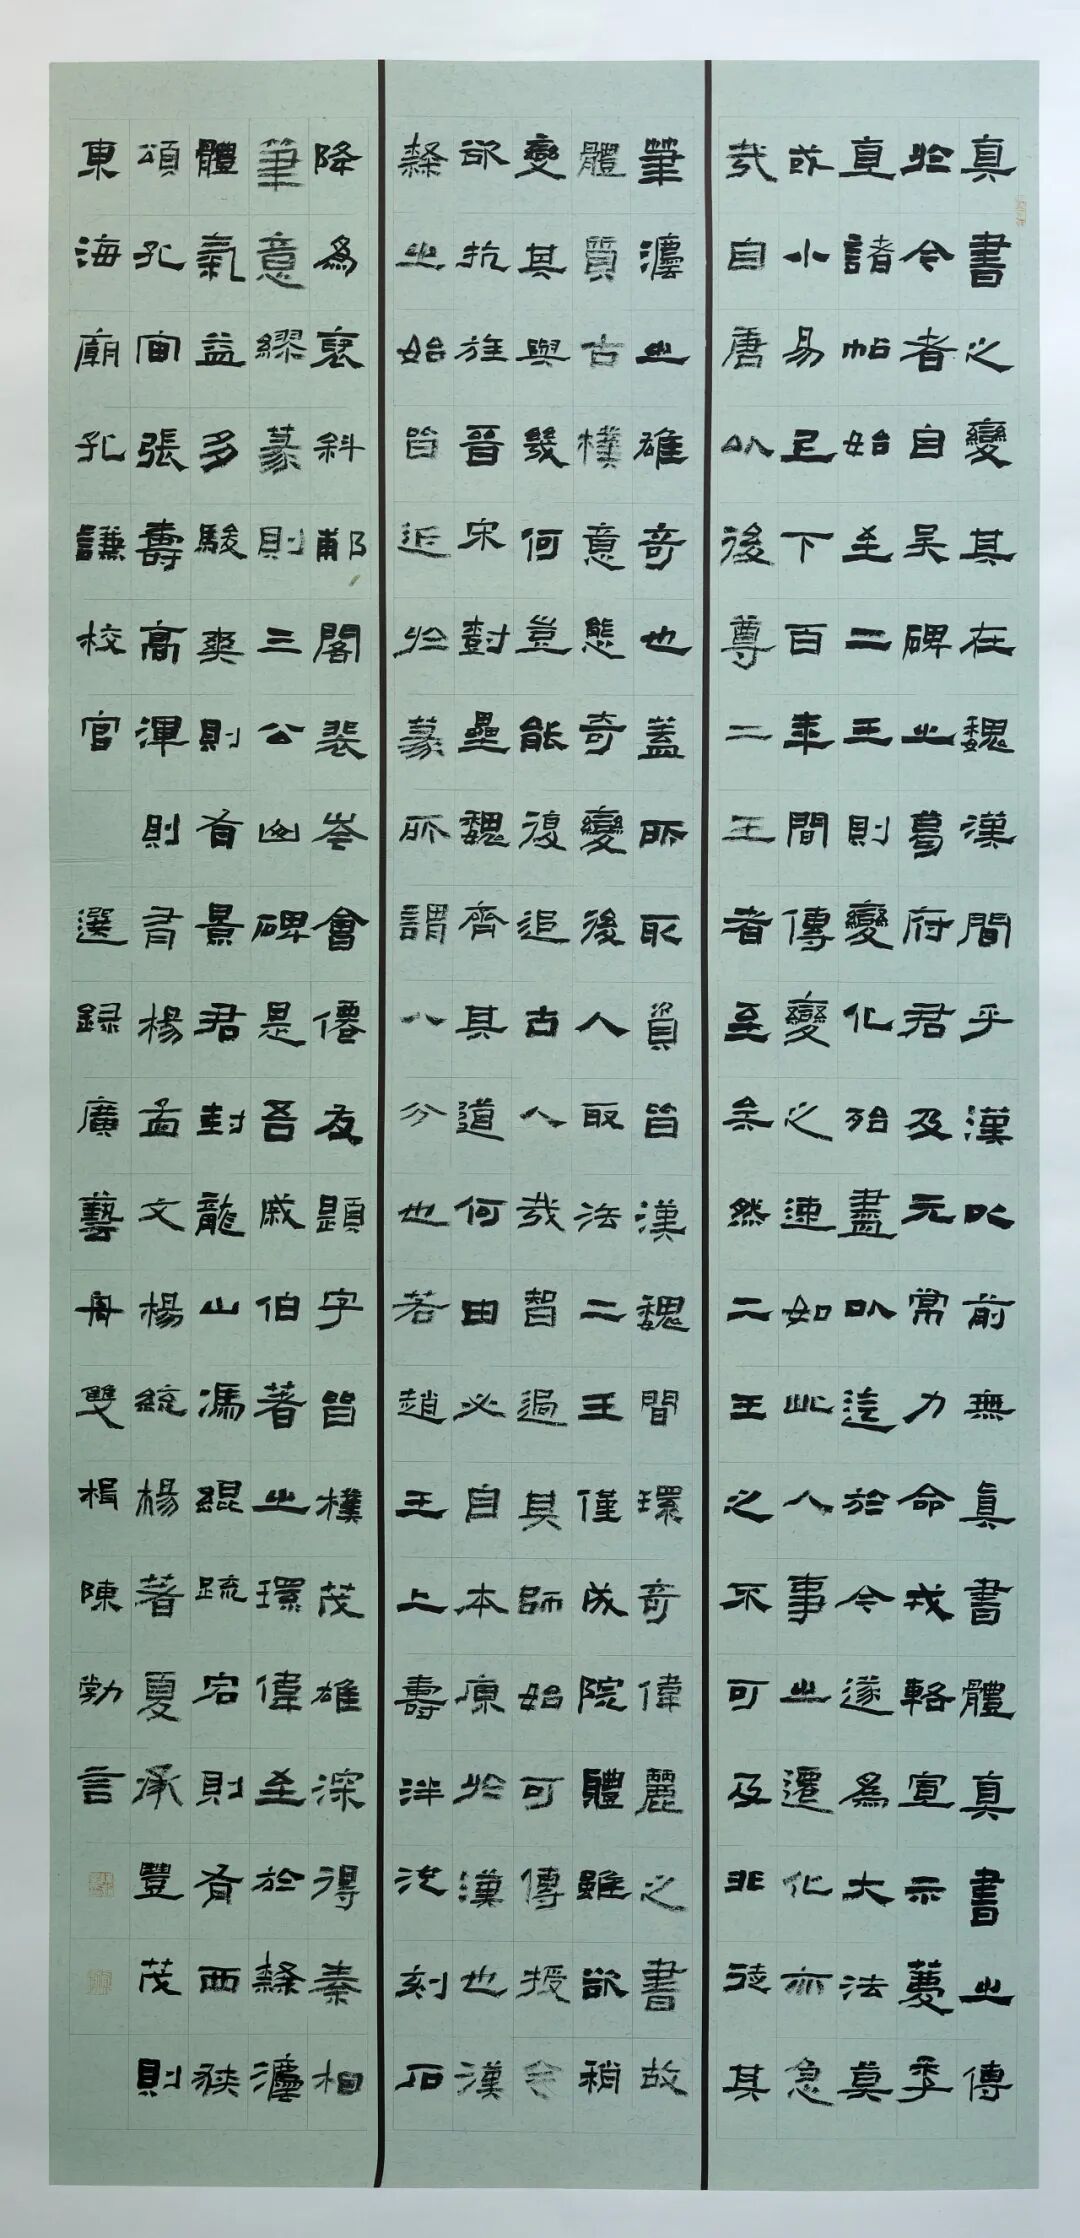 真書之變其在魏漢間乎漢以前無真書體真書之傳
於今者自吳碑之葛府君及元常力命戎輅宣示薦季
直諸帖始至二王則變化殆盡以迄於今遂為大法莫
或小易已下百年間傳變之速如此人事之遷化亦急
哉自唐以後尊二王者至矣然二王之不可及非徒其
筆灋之雄奇也蓋所取資皆漢魏間環奇偉麗之書故
體質古樸意態奇變後人取法二王僅成院體雖欲稍
變其與幾何豈能復追古人哉智過其師始可傳授今
欲抗旌晉宋對壘魏齊其道何由必自本原於漢也漢
隸之始皆近於篆所謂八分也若趙王上壽泮池刻石
降為褒斜郙閣裴岑會僊友題字皆樸茂雄深得秦相
筆意繆篆則三公山碑是吾戚伯著之環偉至於隸灋
體氣益多駿爽則有景君封龍山馮緄疏宕則有西狹
頌孔宙張壽高渾則有楊孟文楊統楊著夏承豐茂則
東海廟孔謙校官 選録廣藝舟雙楫陳勃言